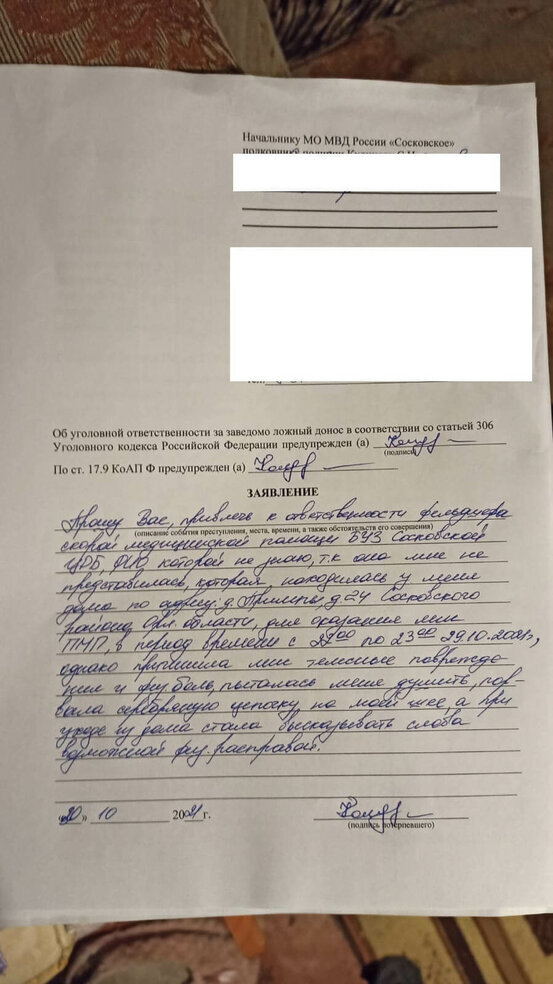 Начальнику МО МВД России «Сосковское»
Об уголовной ответственности за заведомо ложный донос в соответствии со статьей 306
Уголовного кодекса Российской Федерации предупрежден (а)
(подпись)
По ст. 17.9 КоАП Ф предупрежден (а)
ЗАЯВЛЕНИЕ
Прошу Вас, привлечь к ответственности фельдшера
(описание события преступления, места, времени, а также обстоятельств его совершения)
скорой медицинской помощи БУЗ Сосковской
ЦРБ, ФИО которой не знаю, т.к она мне не
представилась, которая, находилась у меня
дома по адресу: д. д.24 Сосковского
района Орл. области, для оказания мне
ПМП, в период времени с 22⁰⁰ по 23⁰⁰ 29.10.2021г,
однако причинила мне телесные поврежде-
ния и физ боль, пыталась меня душить, пор-
вала серебряную цепочку на моей шее, а при
уходе из дома стала высказывать слова
возможной физ расправой.
» 10 2021 г.
(подпись потерпевшего)